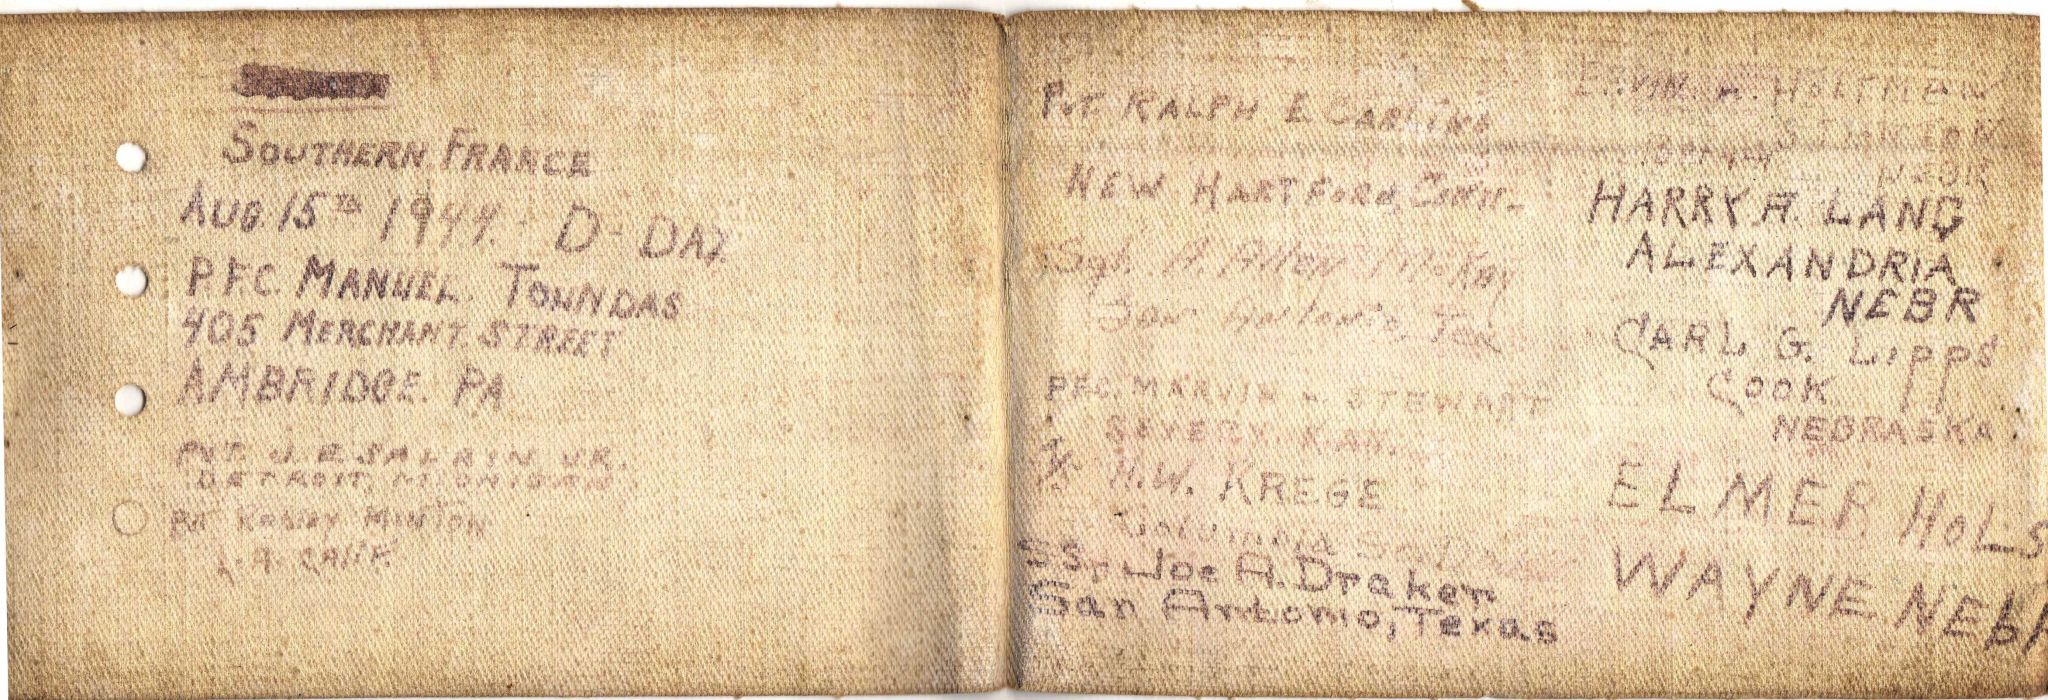 SOUTHERN FRANCE
AUG. 15TH 1944. - D-DAY.
P.F.C. MANUEL. TOWNDAS
405 MERCHANT. STREET
AMBRIDGE. PA
PVT. J. E. JR.
DETROIT, MICHIGAN
PVT MINTON
L.A. CALIF.
PVT. RALPH E
NEW HARTFORD, CONN.
Sgt. A. Allen McKay
San Antonio, Tex
PFC. MARVIN STEWART
SEVERY KAN.
H.W. KREGE
Columbia
SS. Joe A. Draken
San Antonio, Texas
A. HOLTMAN
NEBR
HARRY A. LANG
ALEXANDRIA
NEBR
CARL G. LIPPS
COOK
NEBRASKA
ELMER HOLS
WAYNE. NEBR